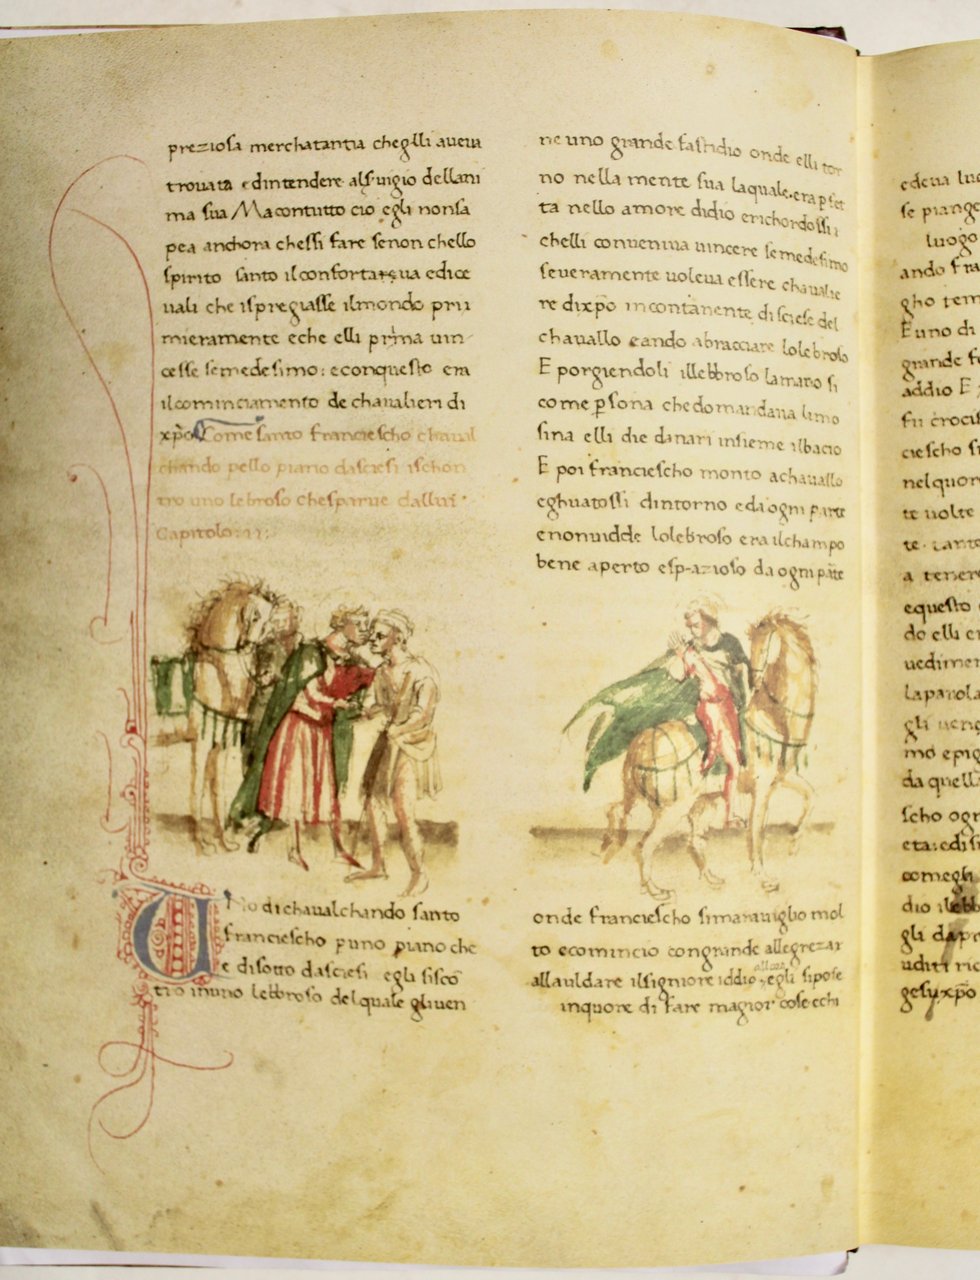 preziosa merchatantia chegdli aveva
trovata edintendere alservigio dellani
ma sua Macontutto cio egli nonsa
pea anchora chessi fare senon chello
spirito santo ilconfortava edice
vali che ispregiasse ilmondo pri
mieramente eche elli prima vin
cesse semedesimo: econquesto era
ilcominciamento de chavalieri di
xpo Come santo Franciescho chaval
chando pello piano dasciesi ischon
tro uno lebroso chesparve dallui
Capitolo: ii:
Uno di chavalchando santo
franciescho p uno piano che
e disotto dasciesi egli sisco
tro inuno lebbroso delquale gliven
ne uno grande fastidio onde elli tor
no nella mente sua laquale era pfet
ta nello amore didio erichordossi
chelli conveniva vincere semedesimo
severamente voleva essere chavalie
re dixpo incontanente disciese del
chavallo eando abracciare lolebroso
E porgiendoli illebbroso lamano si
come psona chedomandava limo
sina elli die danari insieme ilbacio
E poi franciescho monto achavallo
eghuatossi dintorno eda ogni parte
enonvidde lolebroso era ilchampo
bene aperto esp-azioso da ogni pate
onde franciescho simaraviglio mol
to ecomincio congrande allegrezar
allauldare ilsigniore iddio egli sipose
inquore di fare magior cose echi
edeva
se piange
luogo
ando
E uno di
grande
addio E
fu
ciescho
nelquore
te volte
a tenere
equesto
do elli
la parola
gli
mo
da quell
scho ogn
come egli
dio
gli
uditi
gesu xpo